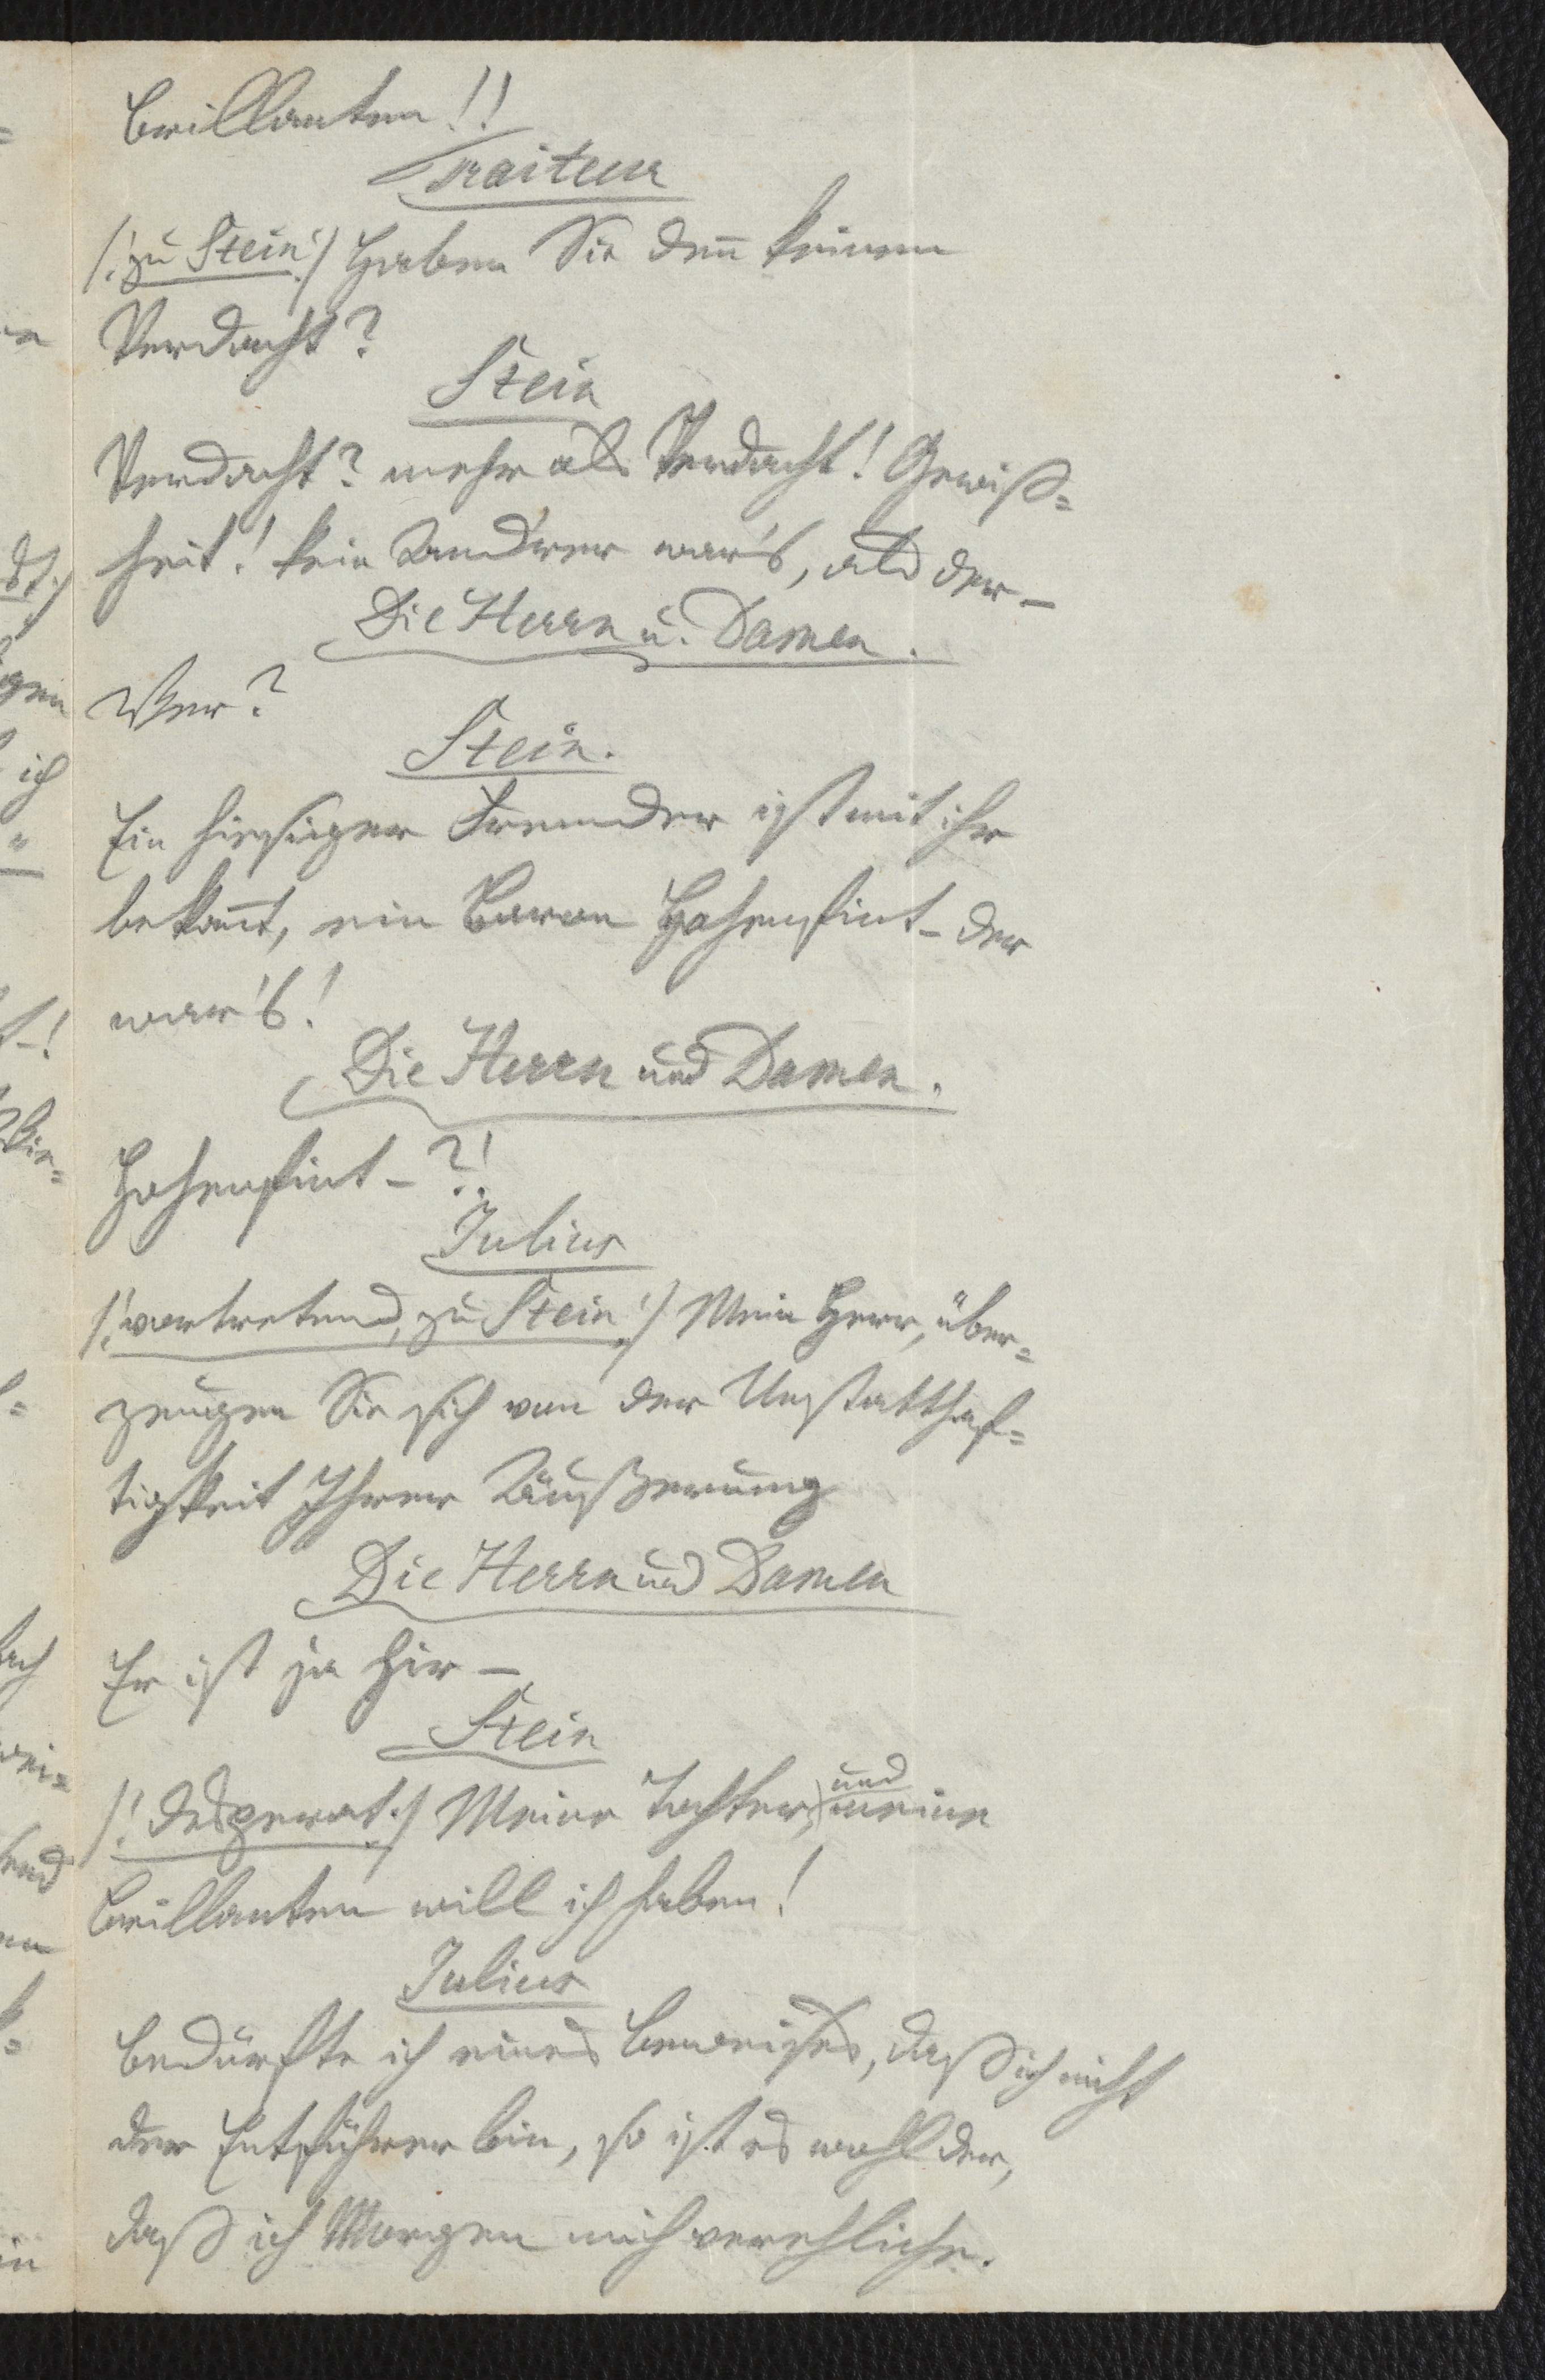 Brillanten!!
Traiteur
/: zu Stein :/ Haben Sie den̄ keinen
Verdacht?
Stein
Verdacht? mehr als Verdacht! Gewiß=
heit! kein Andrer war's, als der –
Die Herrn u. Damen.
Wer?
Stein.
Ein hiesiger Fremder ist mit ihr
bekan̄t, ein Baron Hohenfint – der
war's!
Die Herrn und Damen.
Hohenfint – ?!
Julius
/: vortretend, zu Stein :/ Mein Herr, über=
zeugen Sie sich von der Unstatthaf=
tigkeit Ihrer Äußerung
Die Herrn und Damen
Er ist ja hier –
Stein
/: desperat :/ Meine Tochter, und meine
Brillanten will ich haben!
Julius
Bedürfte ich eines Beweises, daß ich nicht
der Entführer bin, so ist es wohl der,
daß ich Morgen mich verehliche.